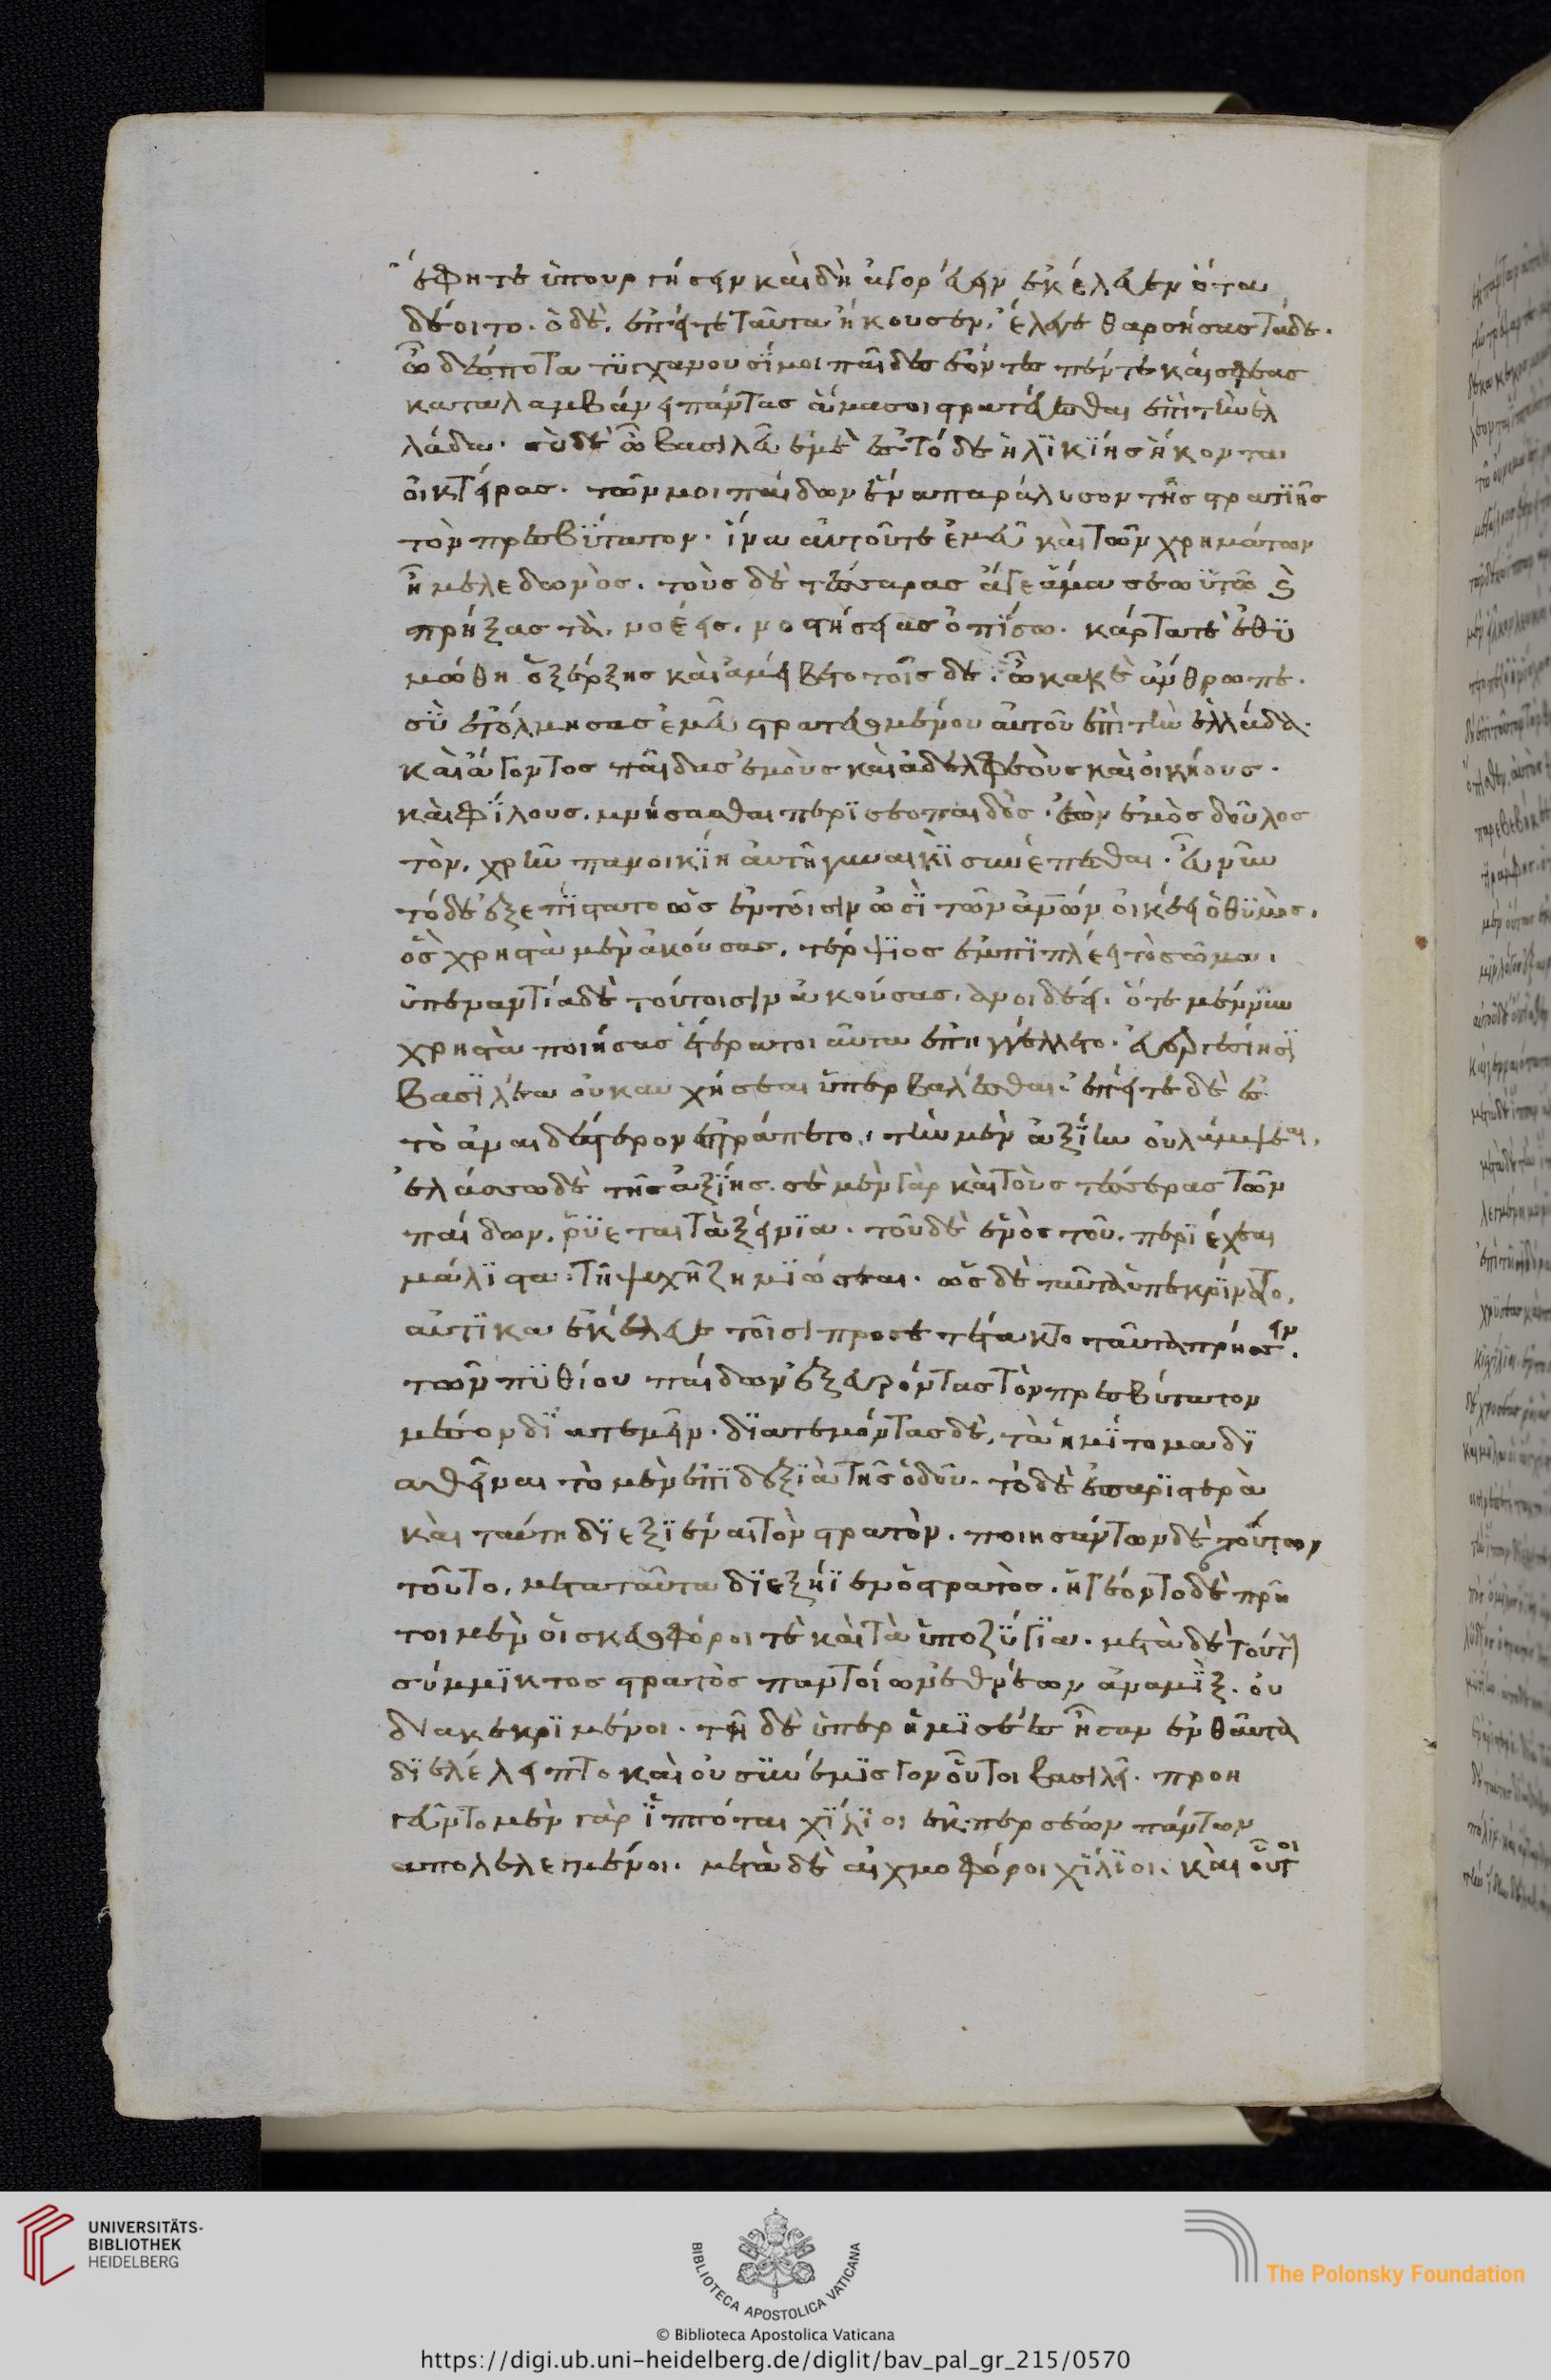 ἔφη τε ὑπουργήσειν καὶ δὴ ἀγορεύειν ἐκέλευεν ὅτευ
δέοιτο. ὁ δὲ, ἐπείτε ταῦτα ἤκουσεν, ἔλεγε θαρσήσας τάδε.
ὦ δέσποτα τυγχάνουσί μοι παῖδες ἐόντες πέντε καί σφεας
καταλαμβάνει πάντας ἅμα σοι στρατεύεσθαι ἐπὶ τὴν ἑλ
λάδα. σὺ δὲ ὦ βασιλεῦ ἐμὲ ἐς τόδε ἡλικίης ἥκοντα
οἰκτείρας. τῶν μοι παίδων ἕνα παράλυσον τῆς στρατιῆς
τὸν πρεσβύτατον. ἵνα αὐτοῦ τε ἐμεῦ καὶ τῶν χρημάτων
ἦ μελεδωνός. τοὺς δὲ τέσσαρας ἄγε ἅμα σεωυτῶ καὶ
πρήξας τὰ, νοέεις, νοστήσειας ὀπίσω. κάρτα τε ἐθυ
μώθη ὁ ξέρξης καὶ ἀμείβετο τοῖσδε. ὦ κακὲ ἄνθρωπε.
σὺ ἐτόλμησας ἐμεῦ στρατευομένου αὐτοῦ ἐπὶ τὴν ἑλλάδα.
καὶ ἄγοντος παῖδας ἐμοὺς καὶ ἀδελφεοὺς καὶ οἰκηίους.
καὶ φίλους. μνήσασθαι περὶ σέο παιδός. ἐὼν ἐμὸς δοῦλος
τὸν, χρῆν πανοικίη αὐτῆ γυναικὶ συνέπεσθαι. εὖ νῦν
τόδε ἐξεπίστατο ὡς ἐν τοῖσιν ὠσὶ τῶν ἀνθρώπων οἰκέει ὁ θυμός,
ὃς χρηστὰ μὲν ἀκούσας, τέρψιος ἐμπιπλέει τὸ σῶμα,
ὑπεναντία δὲ τούτοισιν ἀκούσας, ἀνοιδέει. ὅτε μέν νυν
χρηστὰ ποιήσας ἕτερα τοιαῦτα ἐπηγγέλλετο. εὐεργεσίησι
βασιλέα οὐ καυχήσεαι ὑπερβαλέσθαι. ἐπείτε δὲ ἐς
τὸ ἀναιδέστερον ἐτράπετο, τὴν μὲν ἀξίην οὐ λάμψεαι,
ἐλάσσω δὲ τῆς ἀξίης. σὲ μὲν γὰρ καὶ τοὺς τέσσερας τῶν
παίδων, ῥύεται τὰ ξείνια. τοῦ δὲ ἑνὸς τοῦ, περιέχεαι
μάλιστα. τῆ ψυχῆ ζημιώσεαι. ὡς δὲ ταῦτα ὑπεκρίνατο,
αὐτίκα ἐκέλευε τοῖσι προσετέτακτο ταῦτα πρήσσειν.
τῶν πυθίου παίδων ἐξευρόντας τὸν πρεσβύτατον
μέσον διατεμεῖν. διατεμόντας δὲ, τὰ ἡμίτομα δι
αθεῖναι τὸ μὲν ἐπὶ δεξιὰ τῆς ὁδοῦ. τὸ δὲ ἐπ᾽ ἀριστερὰ
καὶ ταύτη διεξιέναι τὸν στρατόν. ποιησάντων δὲ τούτων
τοῦτο, μετὰ ταῦτα διεξήιε ὁ στρατός. ἡγέοντο δὲ πρῶ
τοι μὲν οἱ σκευοφόροι τε καὶ τὰ ὑποζύγια. μετὰ δὲ τούτους
σύμμικτος στρατὸς παντοίων ἐθνέων ἀναμίξ. οὐ
διακεκριμένοι. τῆ δὲ ὑπερημίσεες ἦσαν ἐνθαῦτα
διελέλειπτο καὶ οὐ συνέμισγον οὗτοι βασιλεῖ. προη
γεῦντο μὲν γὰρ ἱππόται χίλιοι ἐκ περσέων πάντων
ἀπολελεγμένοι. μετὰ δὲ αἰχμοφόροι χίλιοι. καὶ οὗτοι
UNIVERSITÄTS-
BIBLIOTHEK
HEIDELBERG
BIBLIOTECA APOSTOLICA VATICANA
The Polonsky Foundation
© Biblioteca Apostolica Vaticana
https://digi.ub.uni-heidelberg.de/diglit/bav_pal_gr_215/0570